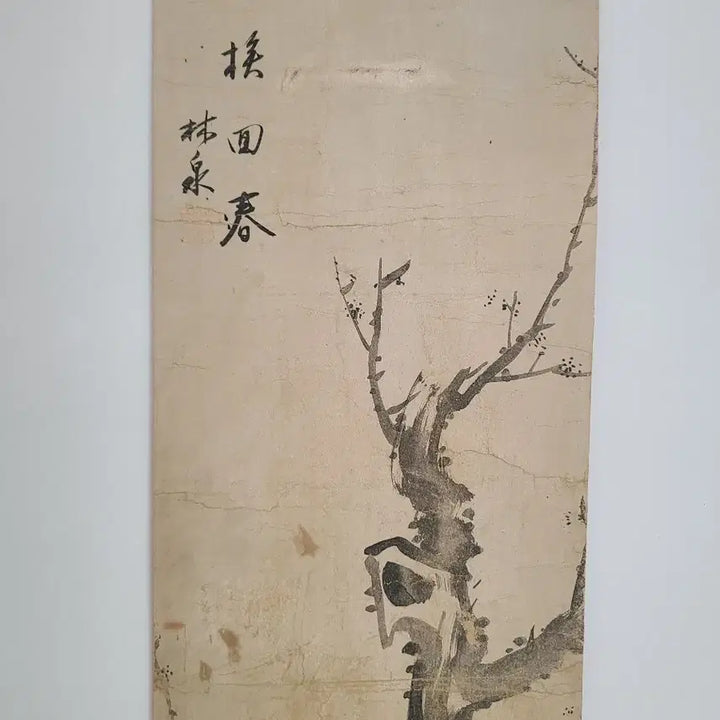 回春
林泉